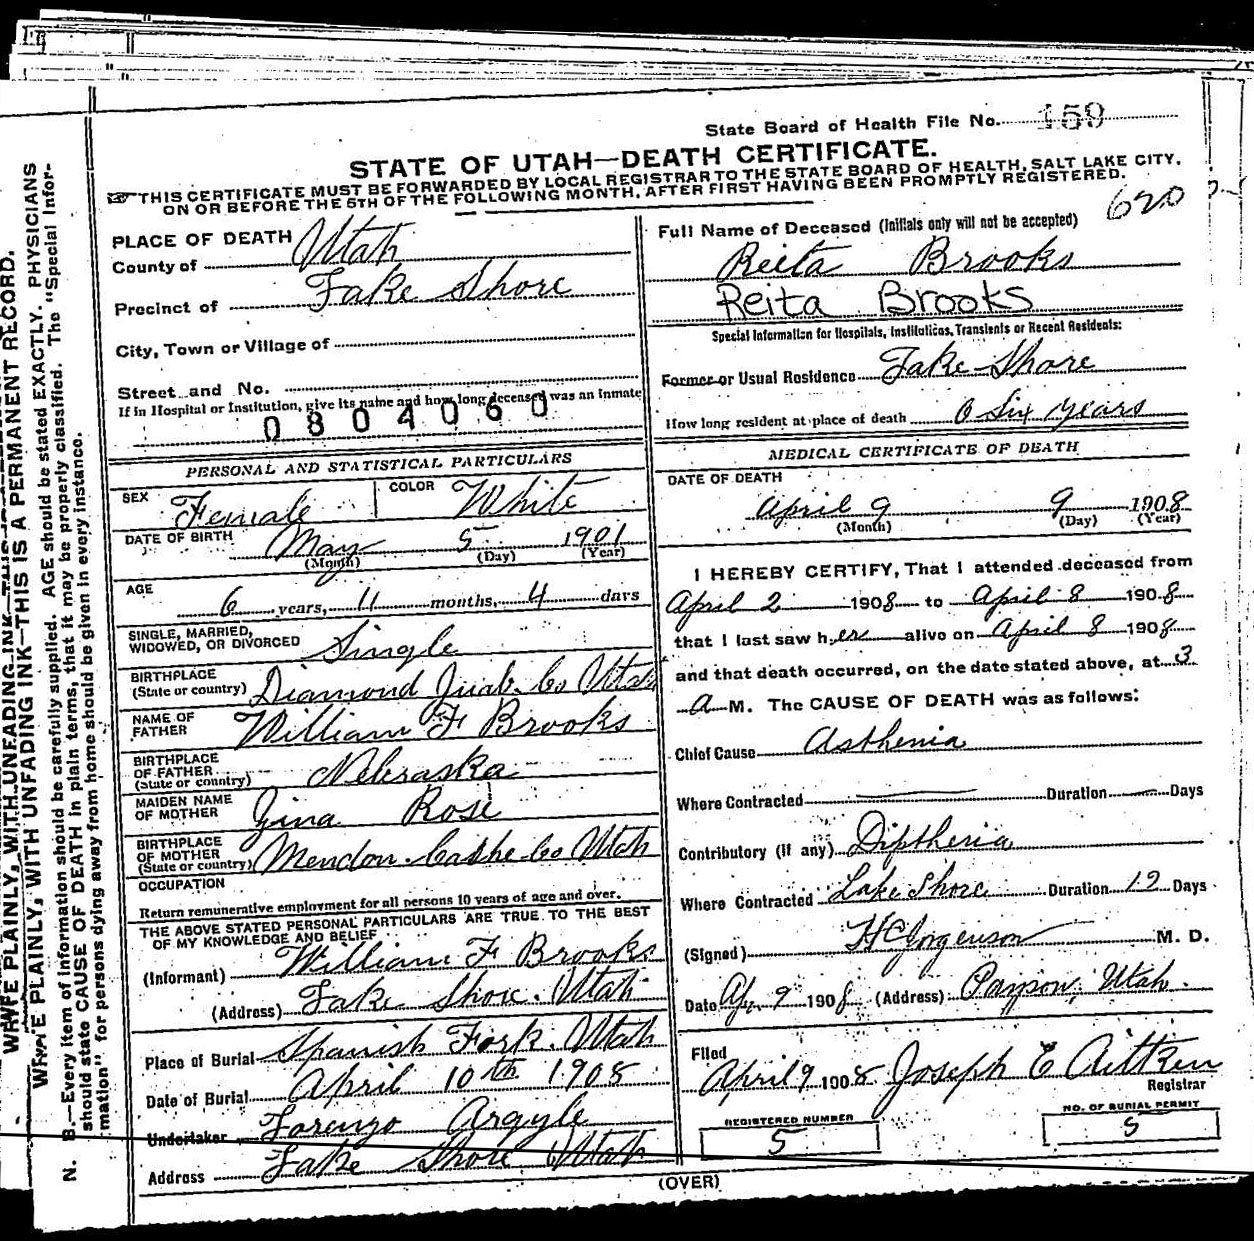 State Board of Health File No. 159
STATE OF UTAH—DEATH CERTIFICATE.
THIS CERTIFICATE MUST BE FORWARDED BY LOCAL REGISTRAR TO THE STATE BOARD OF HEALTH, SALT LAKE CITY,
ON OR BEFORE THE 5TH OF THE FOLLOWING MONTH, AFTER FIRST HAVING BEEN PROMPTLY REGISTERED.
620
PLACE OF DEATH
County of Utah
Precinct of Lake Shore
City, Town or Village of
Street and No.
If in Hospital or Institution, give its name and how long deceased was an inmate
0804060
PERSONAL AND STATISTICAL PARTICULARS
SEX Female COLOR White
DATE OF BIRTH May 5 1901
(Month) (Day) (Year)
AGE 6 years, 11 months, 4 days
SINGLE, MARRIED,
WIDOWED, OR DIVORCED Single
BIRTHPLACE
(State or country) Diamond Juab Co Utah
NAME OF
FATHER William F Brooks
BIRTHPLACE
OF FATHER
(State or country) Nebraska
MAIDEN NAME
OF MOTHER Gina Rose
BIRTHPLACE
OF MOTHER
(State or country) Mendon Cashe Co Utah
OCCUPATION
Return remunerative employment for all persons 10 years of age and over.
THE ABOVE STATED PERSONAL PARTICULARS ARE TRUE TO THE BEST
OF MY KNOWLEDGE AND BELIEF
(Informant) William F Brooks
(Address) Lake Shore. Utah
Place of Burial Spanish Fork. Utah
Date of Burial April 10th 1908
Undertaker Lorenzo Argyle
Address Lake Shore Utah
Full Name of Deceased (Initials only will not be accepted)
Reita Brooks
Reita Brooks
Special Information for Hospitals, Institutions, Transients or Recent Residents:
Former or Usual Residence Lake Shore
How long resident at place of death 0 Six years
MEDICAL CERTIFICATE OF DEATH
DATE OF DEATH
April 9 9 1908
(Month) (Day) (Year)
I HEREBY CERTIFY, That I attended deceased from
April 2 1908 to April 8 1908
that I last saw her alive on April 8 1908
and that death occurred, on the date stated above, at 3
A M. The CAUSE OF DEATH was as follows:
Chief Cause Asthenia
Where Contracted Duration Days
Contributory (if any) Diptheria
Where Contracted Lake Shore Duration 12 Days
(Signed) HC Jorgenson M. D.
Date Ap 9 1908 (Address) Payson, Utah.
Filed
April 9 1908 Joseph E Aitken
Registrar
REGISTERED NUMBER
5
NO. OF BURIAL PERMIT
5
(OVER)
WRITE PLAINLY, WITH UNFADING INK—THIS IS A PERMANENT RECORD.
N. B.—Every item of information should be carefully supplied. AGE should be stated EXACTLY. PHYSICIANS
should state CAUSE OF DEATH in plain terms, that it may be properly classified. The "Special Infor-
mation" for persons dying away from home should be given in every instance.